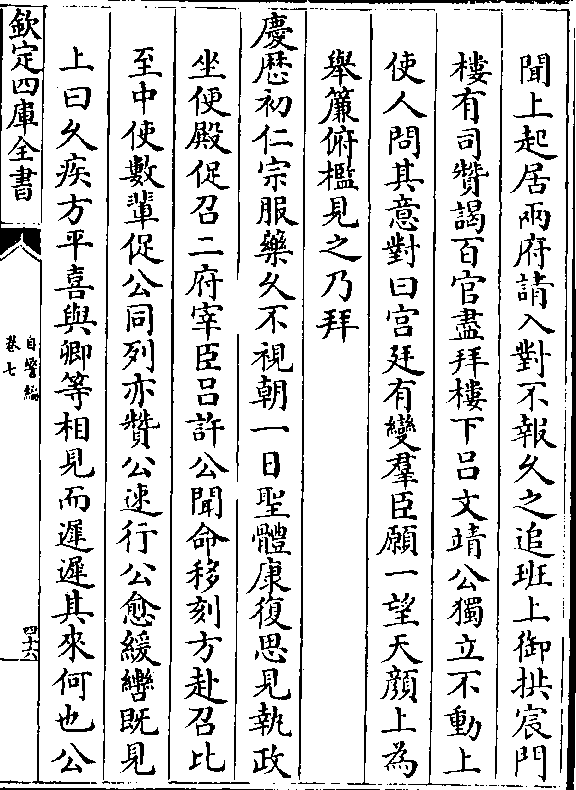 聞上起居兩府請入對不報久之追班上御拱宸門
樓有司贊謁百官盡拜樓下吕文靖公獨立不動上
使人問其意對曰宫廷有變羣臣願一望天顔上為
舉簾俯檻見之乃拜
慶歴初仁宗服藥久不視朝一日聖體康復思見執政
坐便殿促召二府宰臣吕許公聞命移刻方赴召比
至中使數輩促公同列亦贊公速行公愈緩轡既見
上曰久疾方平喜與卿等相見而遲遲其來何也公
欽定四庫全書
自警編
卷七
四十六